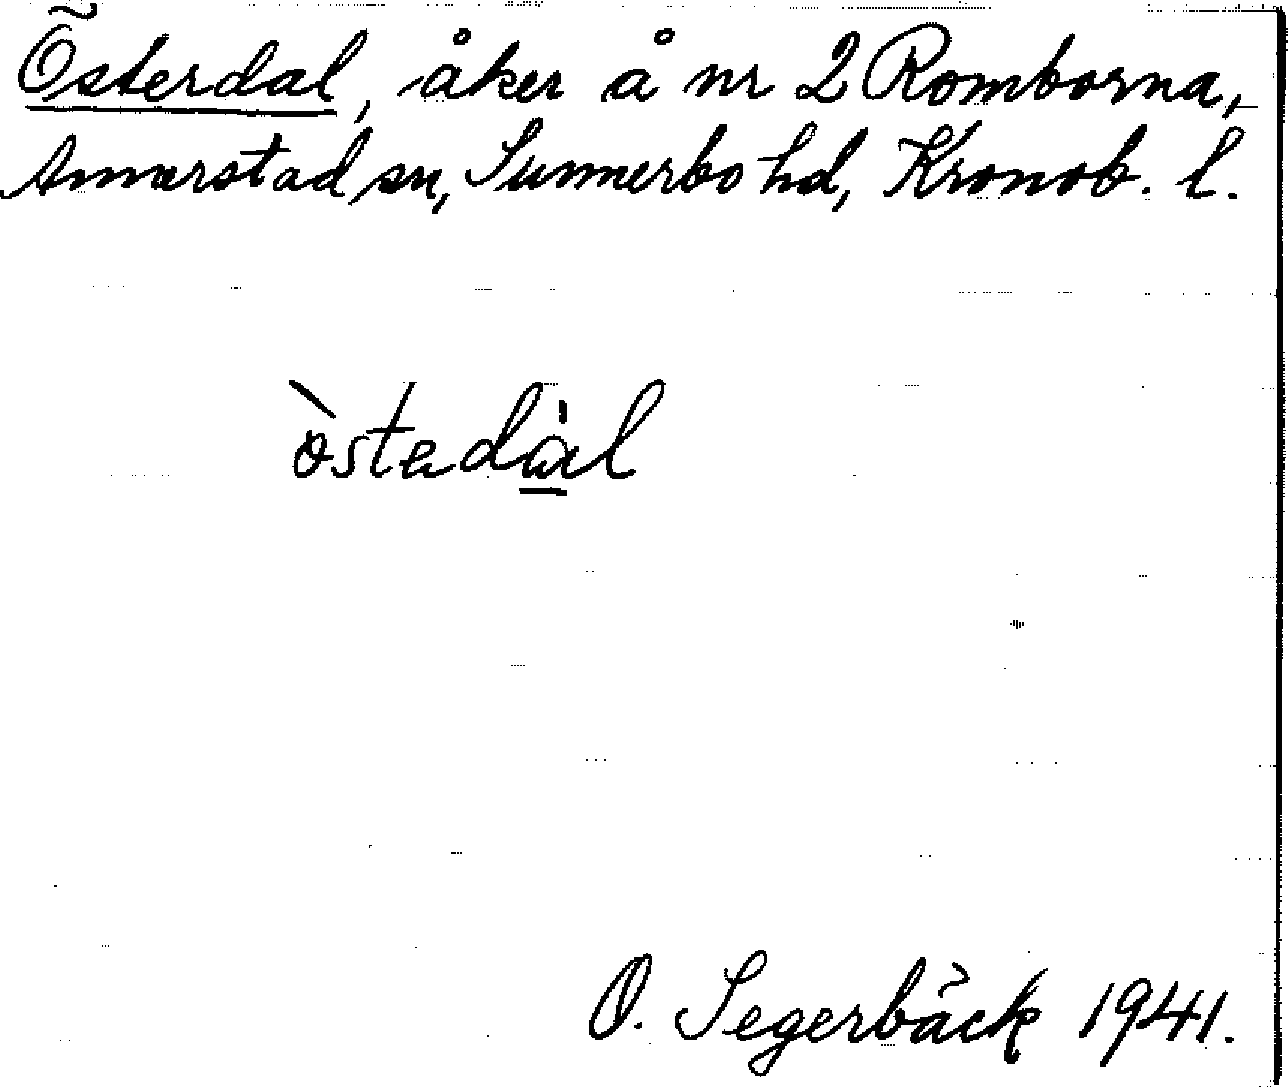 Österdal, åker å nr 2 Romborna,
Annerstad sn, Sunnerbo hd, Kronob. l.
òstedàl
O. Segerbäck 1941.